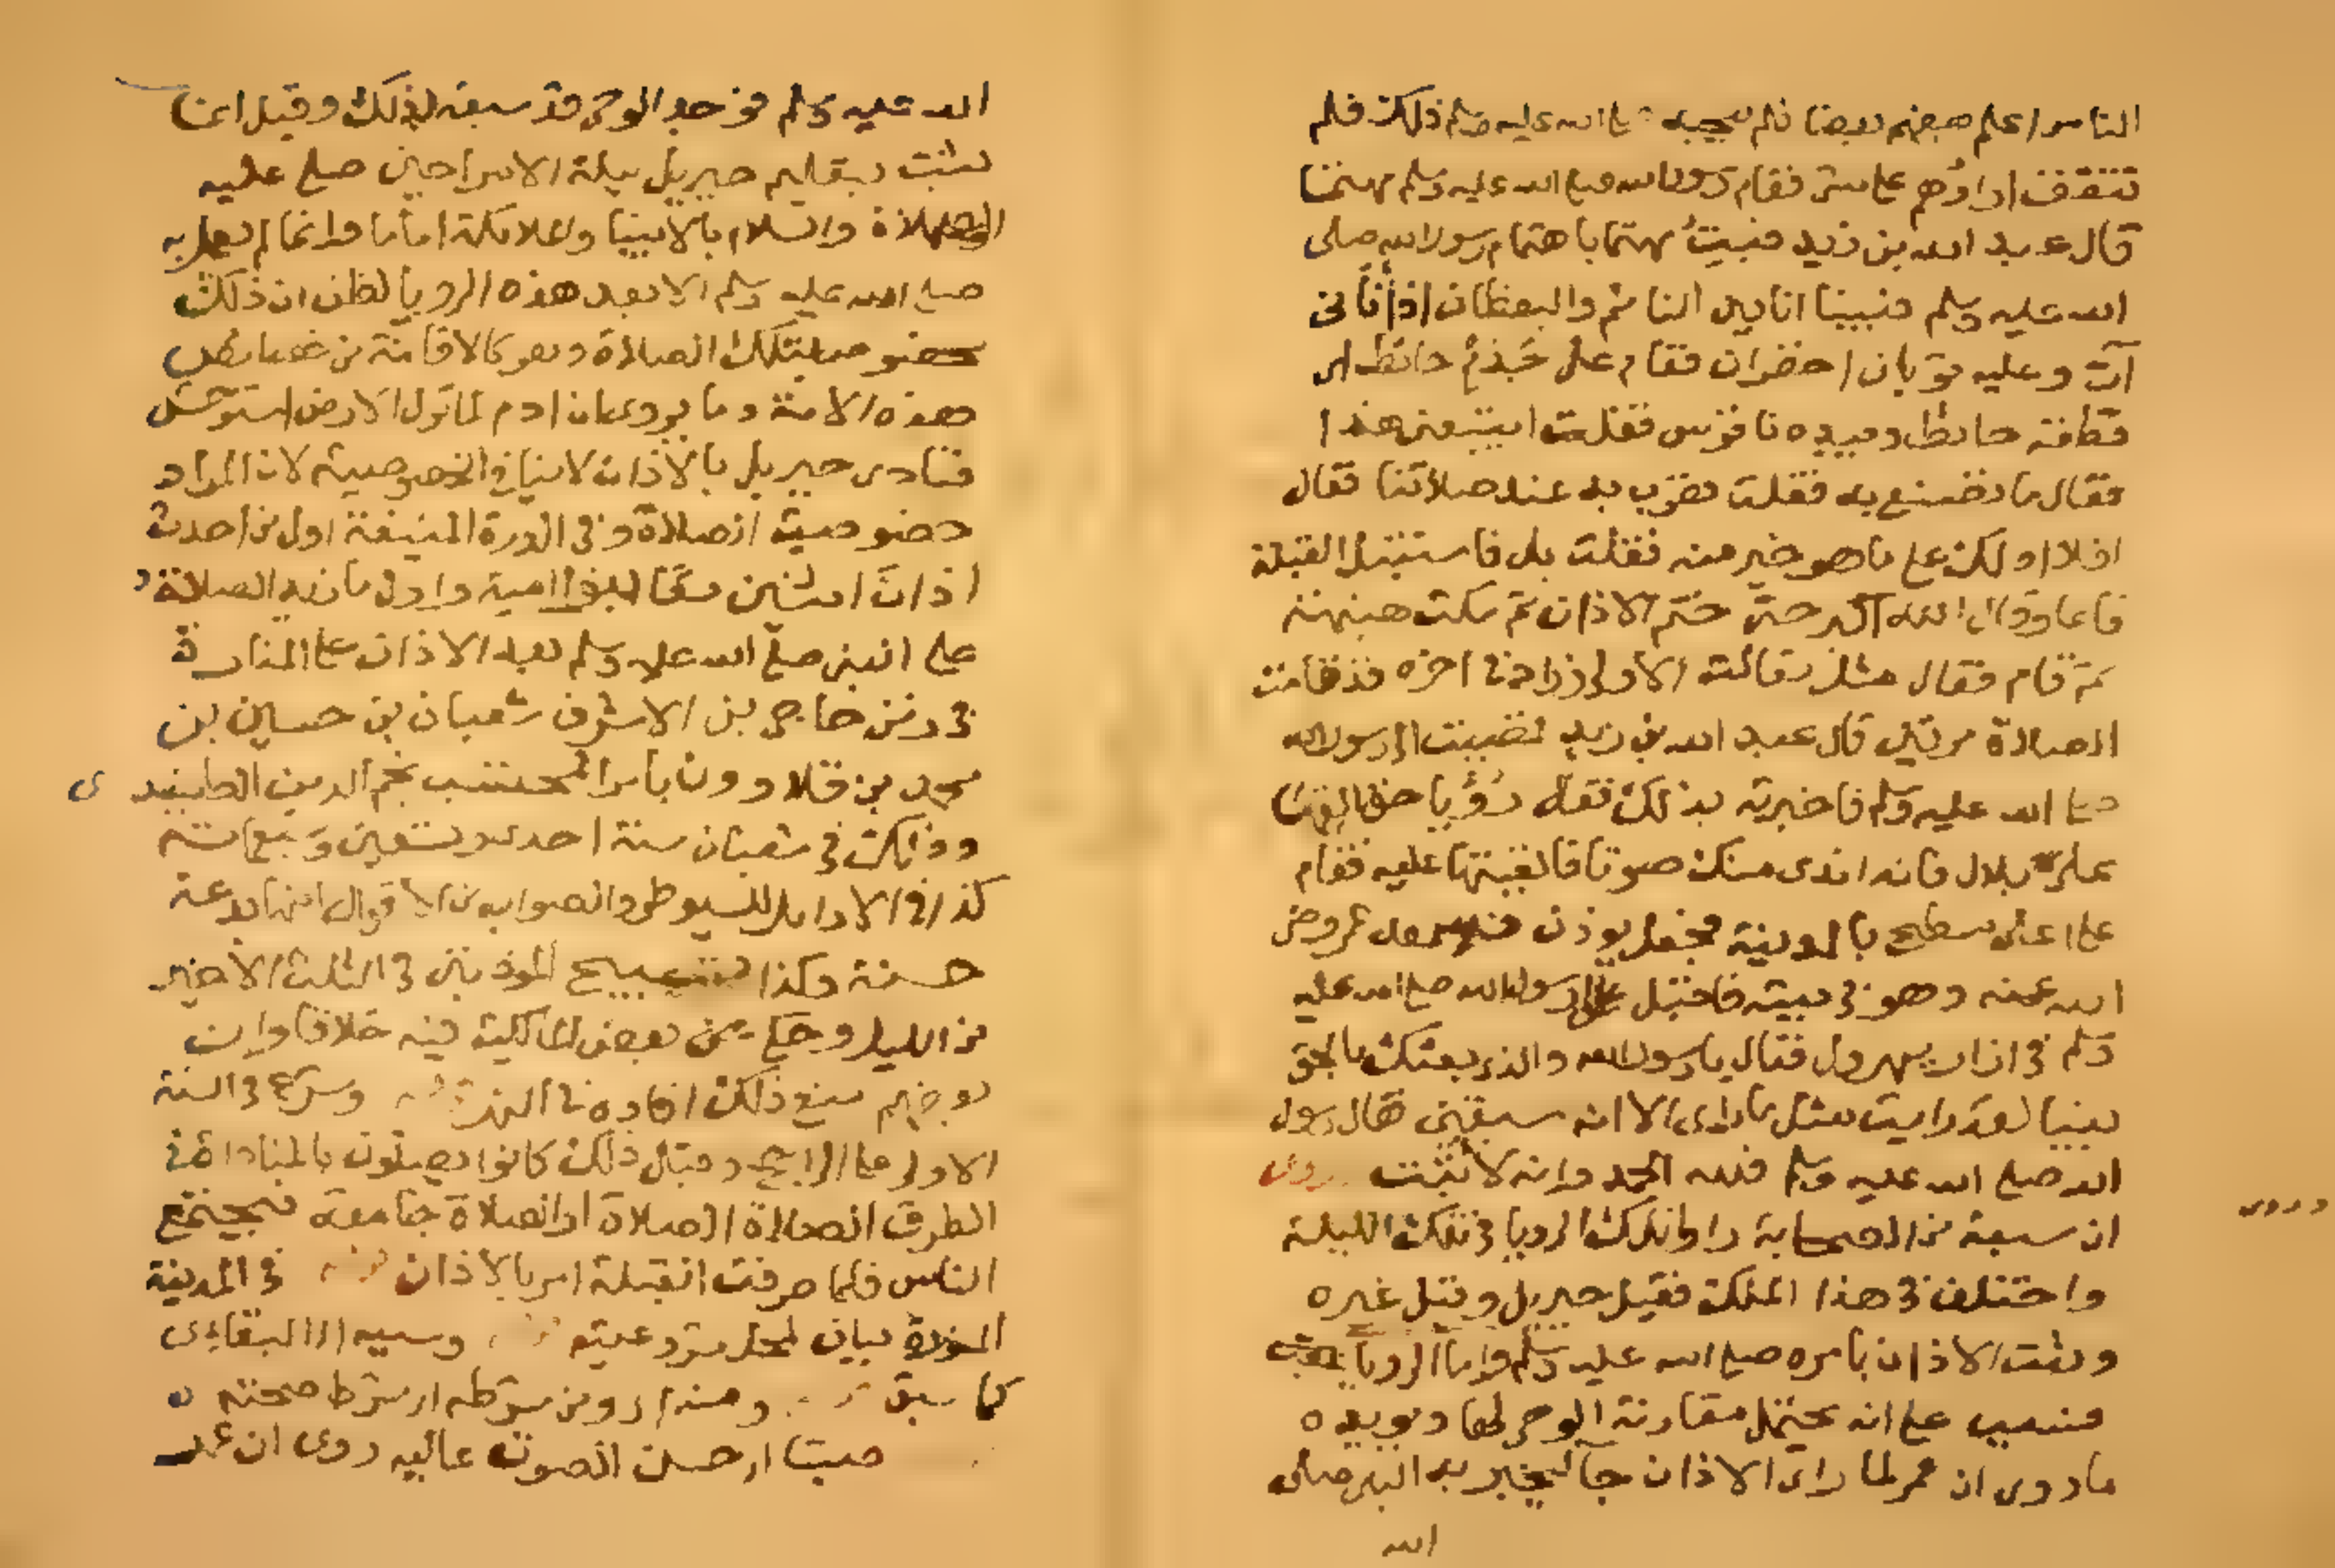 الناس اعلم بعضهم بعضا فلم يعجبه صلى الله عليه وسلم ذلك فلم
تتفق اراؤهم على شئ فقام رسول الله صلى الله عليه وسلم مهتما
قال عبد الله بن زيد فبيت مهتما باهتمام رسول الله صلى
الله عليه وسلم فبينا انا بين النائم واليقظان اذ أتانى
آت وعليه ثوبان اخضران فقام على جذم حائط اى
قطعة حائط وبيده ناقوس فقلت اتبيعنى هذا
فقال ما تصنع به فقلت نضرب به عند صلاتنا فقال
افلا ادلك على ما هو خير منه فقلت بلى فاستقبل القبلة
قائما وقال الله اكبر حتى ختم الاذان ثم سكت هنيهة
ثم قام فقال مثل مقالته الاولى وزاد فى اخره قد قامت
الصلاة مرتين قال عبد الله بن زيد فمضيت الى رسول الله
صلى الله عليه وسلم فاخبرته بذلك فقال رؤيا حق القها
على بلال فانه اندى منك صوتا فالقيتها عليه فقام
على اعلى سطح بالمدينة فجعل يوذن فسمعه عمر رضى
الله عنه وهو فى بيته فاقبل على رسول الله صلى الله عليه
وسلم فى ازار يهرول فقال يا رسول الله والذى بعثك بالحق
نبيا لقد رايت مثل ما راى الا انه سبقنى فقال رسول
الله صلى الله عليه وسلم فلله الحمد وانه لاثبت وروى
وروى
ان سبعة من الصحابة راوا تلك الرويا فى تلك الليلة
واختلف فى هذا الملك فقيل جبريل وقيل غيره
وثبت الاذان بامره صلى الله عليه وسلم واما الرويا
فسبب على انه يحتمل مقارنة الوحى لها ويويده
ما روى ان عمر لما راى الاذان جاء ليخبر به النبى صلى
الله
الله عليه وسلم فوجد الوحى قد سبقه لذلك وقيل انما
ثبت بتعليم جبريل ليلة الاسرا حين صلى عليه
الصلاة والسلام بالانبيا والملائكة اماما وانما لم يعمل به
صلى الله عليه وسلم الا بعد هذه الرويا لظن ان ذلك
خصوصية تلك الصلاة وهو كالاقامة من خصائص
هذه الامة وما يروى ان ادم لما نزل الارض استوحش
فنادى جبريل بالاذان لا ينافى الخصوصية لان المراد
خصوصية الصلاة وفى الدرة المنيفة اول من احدث
اذان اثنين معا بنو امية واول ما زيد الصلاة
على النبى صلى الله عليه وسلم بعد الاذان على المنارة
فى زمن حاجى بن الاشرف شعبان بن حسين بن
محمد بن قلاوون بامر المحتسب نجم الدين الطنبدى
وذلك فى شعبان سنة احدى وتسعين وسبعمائة
كذا فى الاوائل للسيوطى والصواب من الاقوال انها بدعة
حسنة وكذا تسبيح الموذنين فى الثلث الاخير
من الليل وحكى عن بعض المالكية فيه خلافا وان
بعضهم منع ذلك افاده فى النهر قوله وشرع فى السنة
الاولى على الراجح وقبل ذلك كانوا يصلون بالمناداة فى
الطرق الصلاة الصلاة او الصلاة جامعة فيجتمع
الناس فلما صرفت القبلة امر بالاذان قوله فى المدينة
المنورة بيان لمحل مشروعيته وسببه اى البقائى
كما سبق ومنه اى ومن شرطه اى شرط صحته
صيتا اى حسن الصوت عاليه روى ان عمر